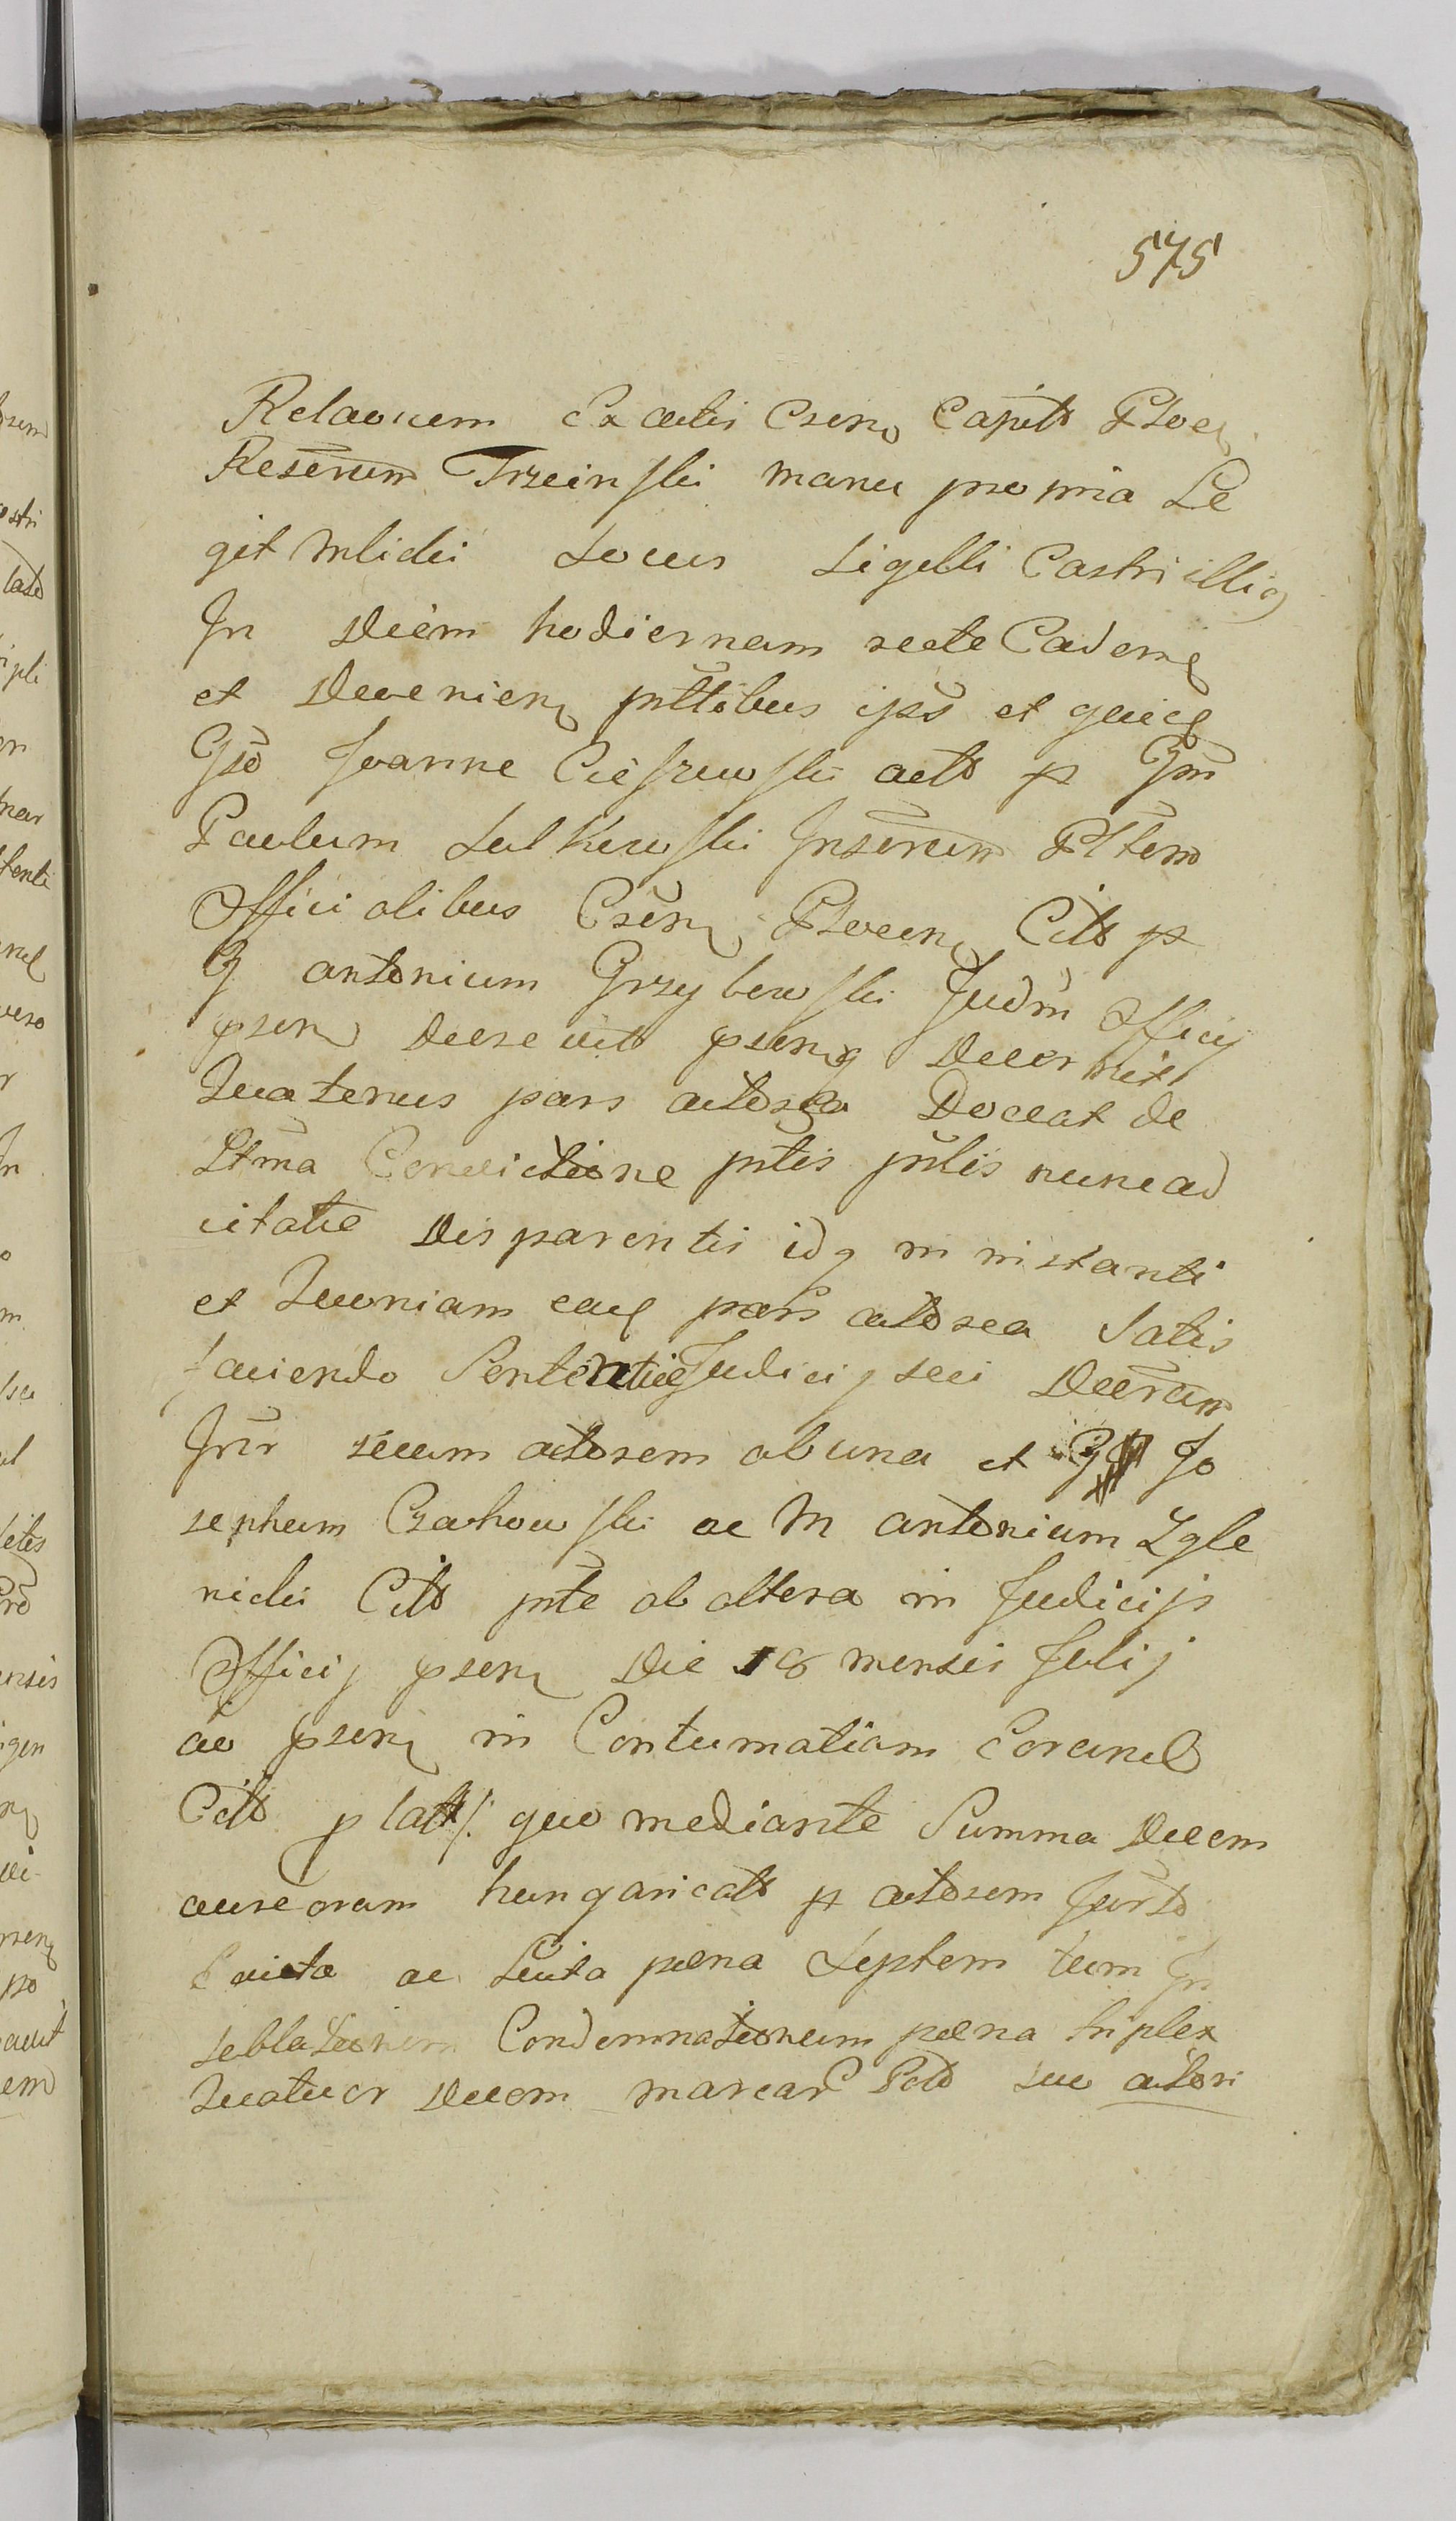 575
Relaonem Ex actis Csen Capit Ploc
Reserum Trzcinski manu propria Le
git Mlicki Locus Sigilli Castri illi9
In Diem hodiernam recte Caden
et Devenien pttibus ips et
Gso Joanne Cieszewski act p Gm
Paulum Sulkowski Inserum Pltem
Officialibus Csen Plocen Citt p
G antonium Grzybowski Judm Officij
psen Decrevit psenq Decernit
Quatenus pars actorea Doceat de
Ltma Convictione ptis ptis nunc ad
citatae Disparentis idq in instanti
et Quoniam ead pars actorea Satis
faciendo Sententiae Judicij sui Decrum
Intr secum actorem ab una et G Jo
sephum Czachowski ac M antonium Zgle
nicki Citt pte ab altera in Judicijs
Officij psen Die 18 mensis Julij
ao psen in Contumatiam eorund
Citt p lat/: quo mediante Summa Decem
aureorum hungaricalt p actorem Jurto
Evicta ac Luita paena Septem tum In
sublationem Condemnationum paena triplex
Quatuor Decem marcar Polo suo actori